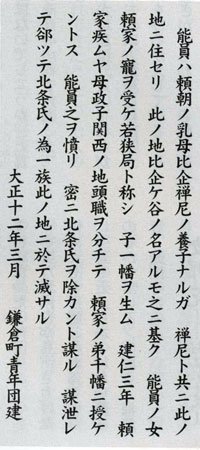 能員ハ頼朝ノ乳母比企禅尼ノ養子ナルガ　禅尼ト共ニ此ノ
地ニ住セリ　此ノ地比企ケ谷ノ名アルモ之ニ基ク　能員ノ女
頼家ノ寵ヲ受ケ若狭局ト称シ　子一幡ヲ生ム　建仁三年　頼
家疾ムヤ母政子関西ノ地頭職ヲ分チテ　頼家ノ弟千幡ニ授ケ
ントス　能員之ヲ憤リ　密ニ北条氏ヲ除カント謀ル　謀泄レ
テ郤ツテ北条氏ノ為一族此ノ地ニ於テ滅サル
大正十二年三月　鎌倉町青年団建